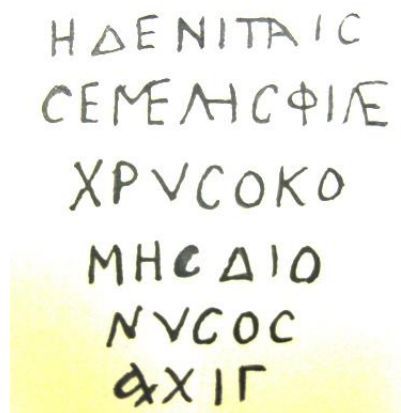 ΗΔΕΝΙΠΑΙC
CΕΜΕΛΗCΦΙΛΕ
ΧΡΥCΟΚΟ
ΜΗCΔΙΟ
ΝΥCΟC
ΑΧΙΓ